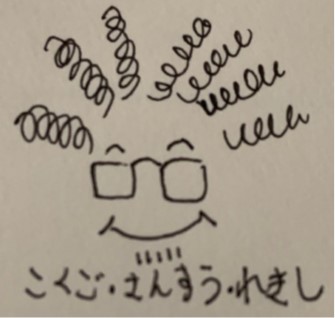 こくご・さんすう・れきし